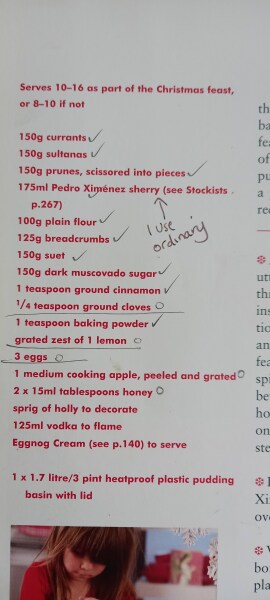 Serves 10–16 as part of the Christmas feast,
or 8–10 if not
150g currants ✓
150g sultanas ✓
150g prunes, scissored into pieces ✓
175ml Pedro Ximénez sherry (see Stockists
p.267)
I use
ordinary
100g plain flour ✓
125g breadcrumbs ✓
150g suet ✓
150g dark muscovado sugar ✓
1 teaspoon ground cinnamon ✓
¼ teaspoon ground cloves O
1 teaspoon baking powder ✓
grated zest of 1 lemon O
3 eggs O
1 medium cooking apple, peeled and grated O
2 x 15ml tablespoons honey O
sprig of holly to decorate
125ml vodka to flame
Eggnog Cream (see p.140) to serve
1 x 1.7 litre/3 pint heatproof plastic pudding
basin with lid